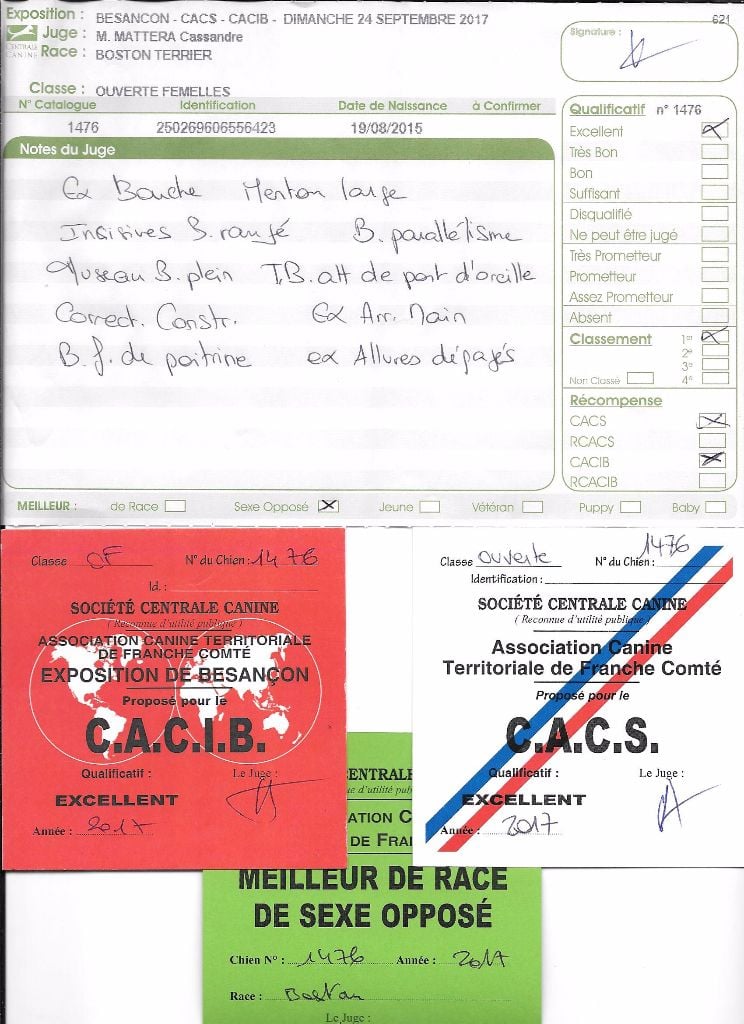 Exposition : BESANCON - CACS - CACIB - DIMANCHE 24 SEPTEMBRE 2017
621
Juge : M. MATTERA Cassandre
CENTRALE CANINE
Race : BOSTON TERRIER
Signature :
Classe : OUVERTE FEMELLES
N° Catalogue Identification Date de Naissance à Confirmer
1476 250269606556423 19/08/2015
Notes du Juge
Ex Bouche Menton large
Incisives B. rangé B. parallélisme
Museau B. plein T.B. att de port d'oreille
Correct. Constr. Ex Arr. Main
B. f. de poitrine ex Allures dégagés
Qualificatif n° 1476
Excellent
Très Bon
Bon
Suffisant
Disqualifié
Ne peut être jugé
Très Prometteur
Prometteur
Assez Prometteur
Absent
Classement 1er
2e
3e
Non Classé 4e
Récompense
CACS
RCACS
CACIB
RCACIB
MEILLEUR : de Race Sexe Opposé Jeune Vétéran Puppy Baby
Classe OF N° du Chien : 1476
Id. :
SOCIÉTÉ CENTRALE CANINE
( Reconnue d'utilité publique )
ASSOCIATION CANINE TERRITORIALE
DE FRANCHE COMTÉ
EXPOSITION DE BESANÇON
Proposé pour le
C.A.C.I.B.
Qualificatif : Le Juge :
EXCELLENT
Année : 2017
Classe ouverte N° du Chien : 1476
Identification :
SOCIÉTÉ CENTRALE CANINE
( Reconnue d'utilité publique )
Association Canine
Territoriale de Franche Comté
Proposé pour le
C.A.C.S.
Qualificatif : Le Juge :
EXCELLENT
Année : 2017
ENTRALE
d'utilité pu
ATION C
DE FRA
MEILLEUR DE RACE
DE SEXE OPPOSÉ
Chien N° : 1476 Année : 2017
Race : Boston
Le Juge :